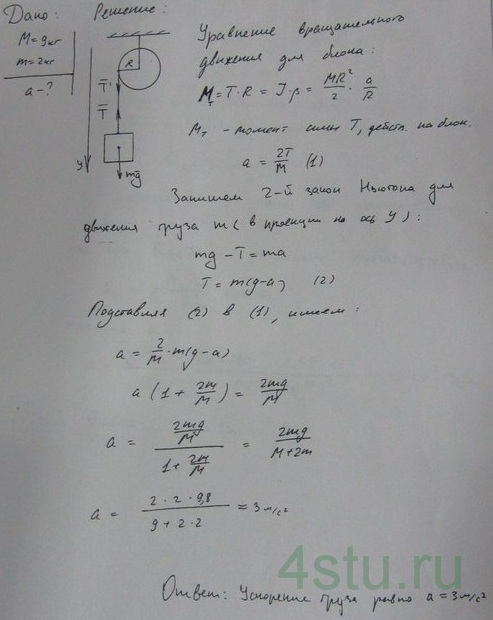 Дано:
Решение:
M=9кг
m=2кг
a-?
R
T'
T
y
mg
Уравнение вращательного
движения для блока:
M_T = T·R = J·β = MR²/2 · a/R
M_T - момент силы T, действ. на блок.
a = 2T/M (1)
Запишем 2-й закон Ньютона для
движения груза m (в проекции на ось y):
mg - T = ma
T = m(g-a) (2)
Подставляя (2) в (1), имеем:
a = 2/M · m(g-a)
a (1 + 2m/M) = 2mg/M
a = (2mg/M)/(1 + 2m/M) = 2mg/(M+2m)
a = (2·2·9,8)/(9+2·2) = 3м/с²
4stu.ru
Ответ: Ускорение груза равно a=3м/с²